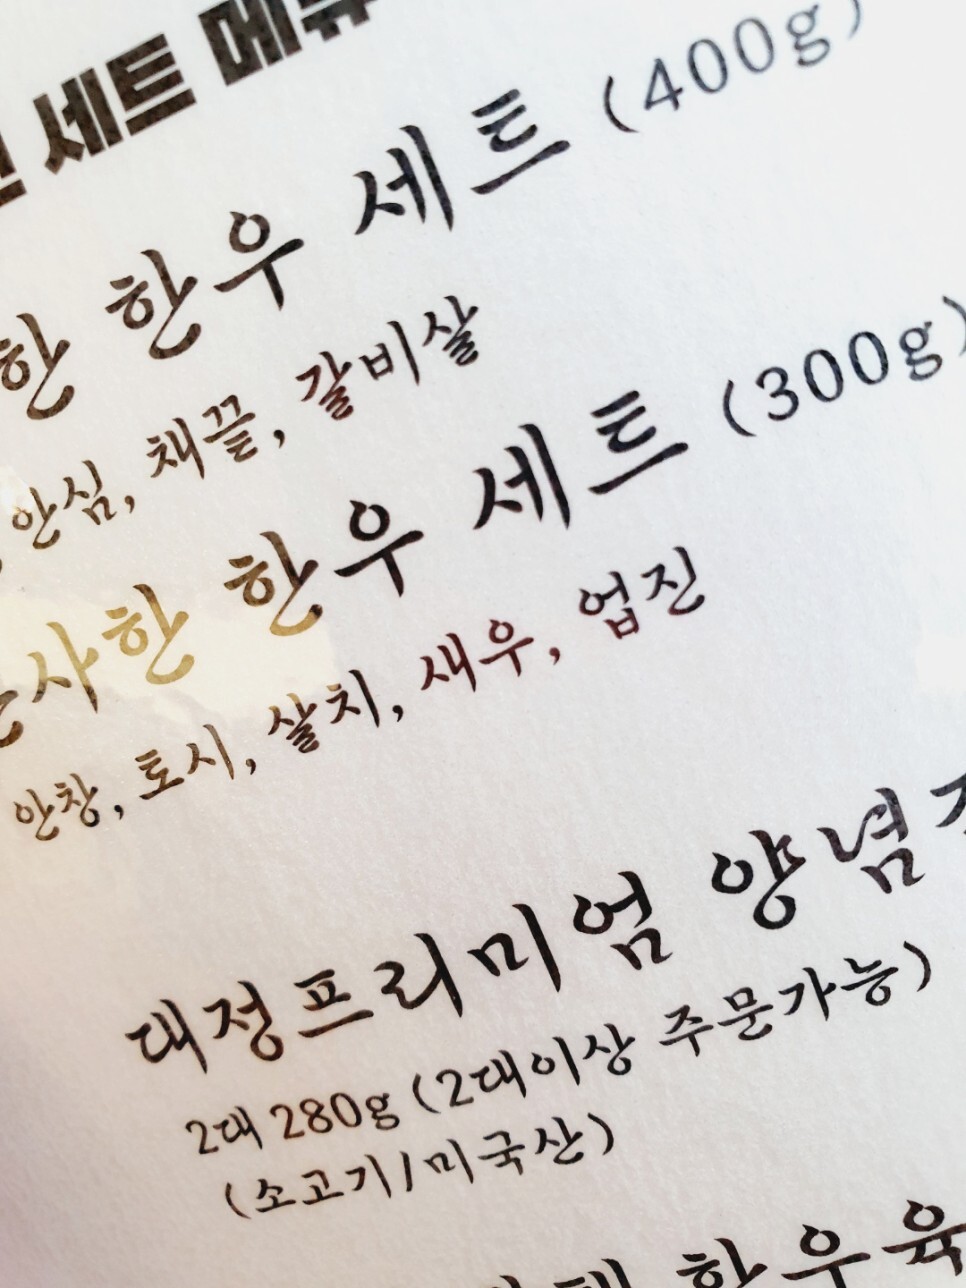 세트 메뉴
한우 세트 (400g)
안심, 채끝, 갈비살
한우 세트 (300g)
안창, 토시, 살치, 새우, 업진
대정프리미엄 양념
2대 280g (2대이상 주문가능)
(소고기/미국산)
한우육